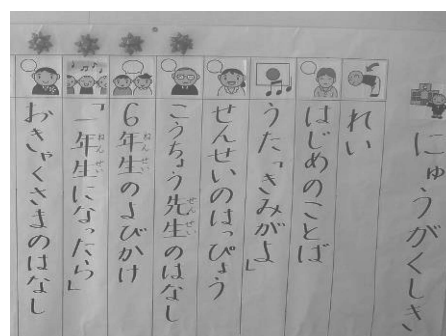 にゅうがくしき
れい
はじめのことば
うた「きみがよ」
せんせいのはっぴょう
こうちょう先生のはなし
6年生のよびかけ
「一年生になったら」
おきゃくさまのはなし